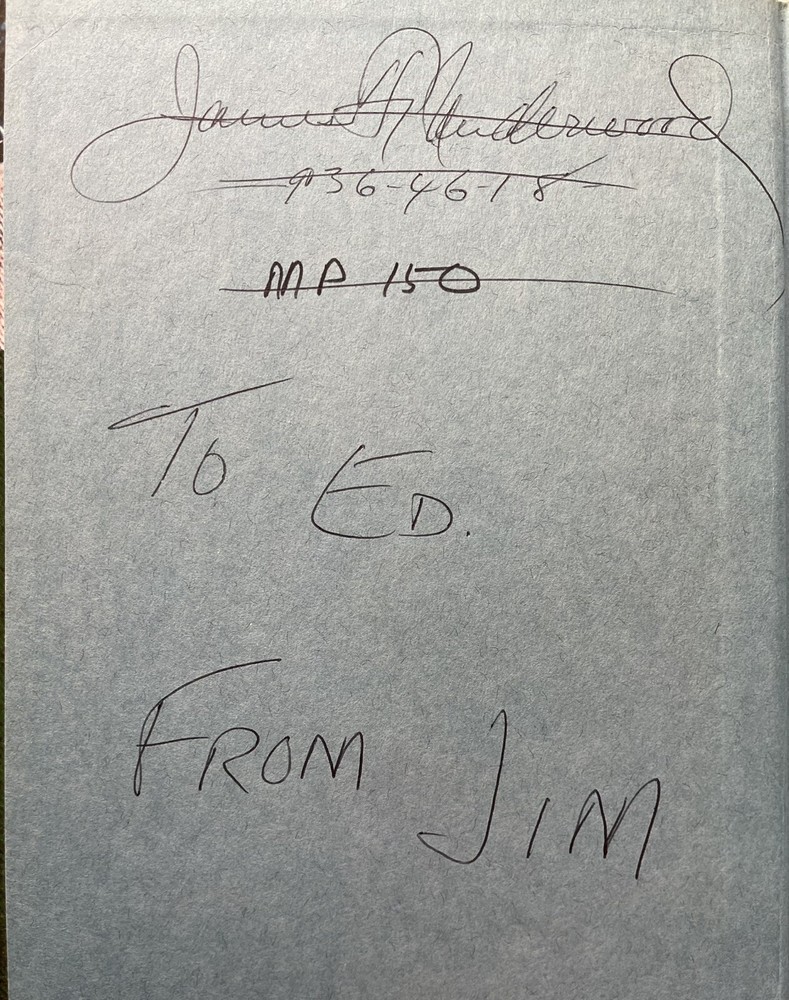 James H Underwood
936-46-18
MP 150
To ED.
FROM JIM